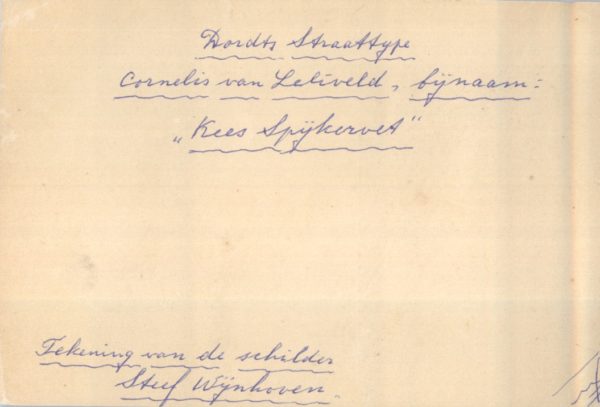 Dordts Straattype
Cornelis van Letiveld, bijnaam:
„Kees Spijkervet"
Tekening van de schilder
Steef Wijnhoven.